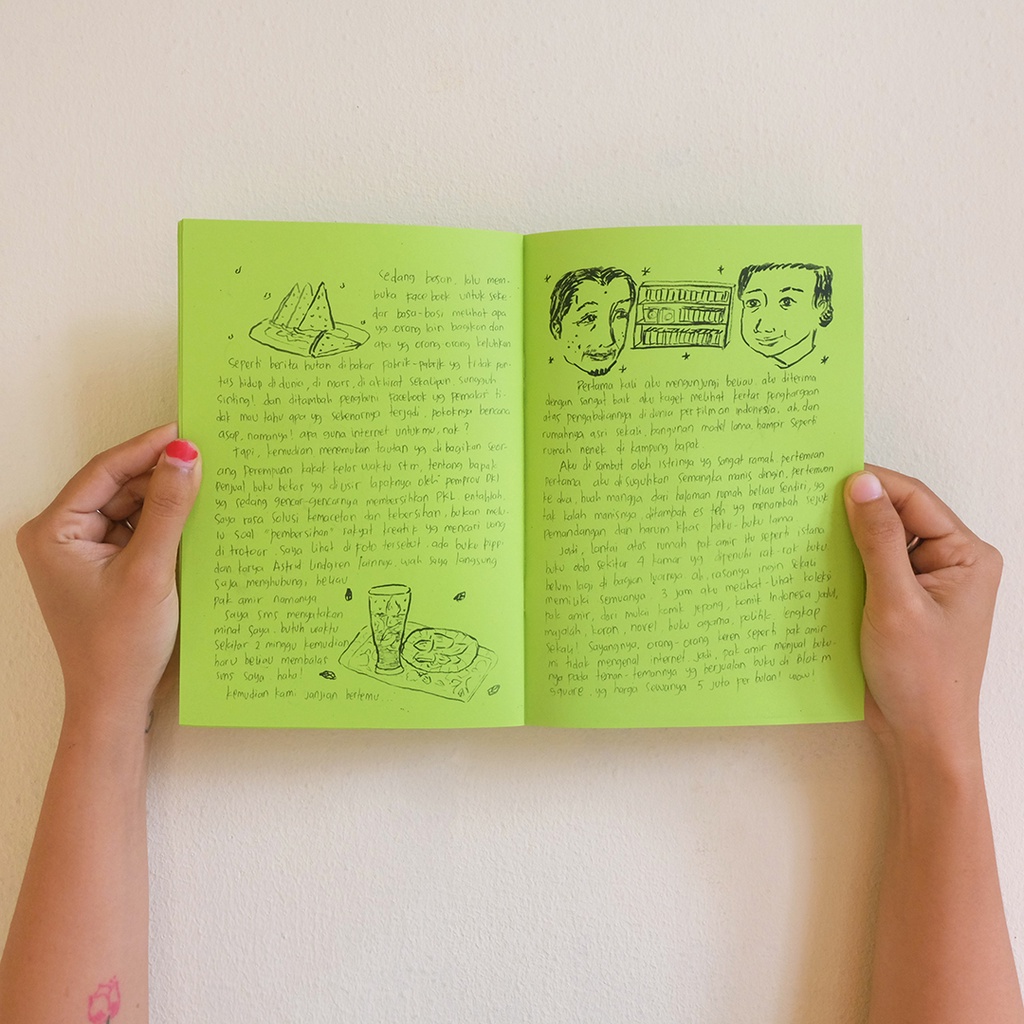 Sedang bosan, lalu mem-
buka Facebook untuk seke-
dar basa-basi melihat apa
yg orang lain bagikan dan
apa yg orang-orang keluhkan
Seperti berita hutan dibakar pabrik-pabrik yg tidak pan-
tas hidup di dunia, di mars, di akhirat sekalipun. sungguh
sinting! dan ditambah penghuni Facebook yg pemalas ti-
dak mau tahu apa yg sebenarnya terjadi, pokoknya bencana
asap, namanya! apa guna internet untukmu, nak?
Tapi, kemudian menemukan tautan yg dibagikan seor-
ang perempuan kakak kelas waktu stm, tentang bapak
penjual buku bekas yg diusir lapaknya oleh pemprov DKI
yg sedang gencar-gencarnya membersihkan PKL. entahlah,
saya rasa solusi kemacetan dan kebersihan, bukan melu-
lu soal "pembersihan" rakyat kreatif yg mencari uang
di trotoar. saya lihat di foto tersebut, ada buku Pippi
dan karya Astrid Lindgren lainnya, wah saya langsung
saja menghubungi beliau
pak amir namanya
saya sms menyatakan
minat saya. butuh waktu
sekitar 2 minggu kemudian
baru beliau membalas
sms saya haha!
kemudian kami janjian bertemu...
Pertama kali aku mengunjungi beliau, aku diterima
dengan sangat baik aku kaget melihat kertas penghargaan
atas pengabdiannya di dunia perfilman indonesia, ah dan
rumahnya asri sekali, bangunan model lama, hampir seperti
rumah nenek di kampung bapak
Aku di sambut oleh istrinya yg sangat ramah, pertemuan
pertama aku disuguhkan semangka manis dingin, pertemuan
ke dua, buah mangga dari halaman rumah beliau sendiri, yg
tak kalah manisnya, ditambah es teh yg menambah sejuk
pemandangan dan harum khas buku-buku lama
Jadi, lantai atas rumah pak amir itu seperti istana
buku ada sekitar 4 kamar yg dipenuhi rak-rak buku
belum lagi di bagian luarnya ah, rasanya ingin sekali
memiliki semuanya. 3 jam aku melihat-lihat koleksi
pak amir, dari mulai komik jepang, komik Indonesia jadul,
majalah, koran, novel buku agama, politik, lengkap
sekali! sayangnya, orang-orang keren seperti pak amir
ini tidak mengenal internet. jadi, pak amir menjual buku-
nya pada teman-temannya yg berjualan buku di Blok m
square, yg harga sewanya 5 juta per bulan! wow!